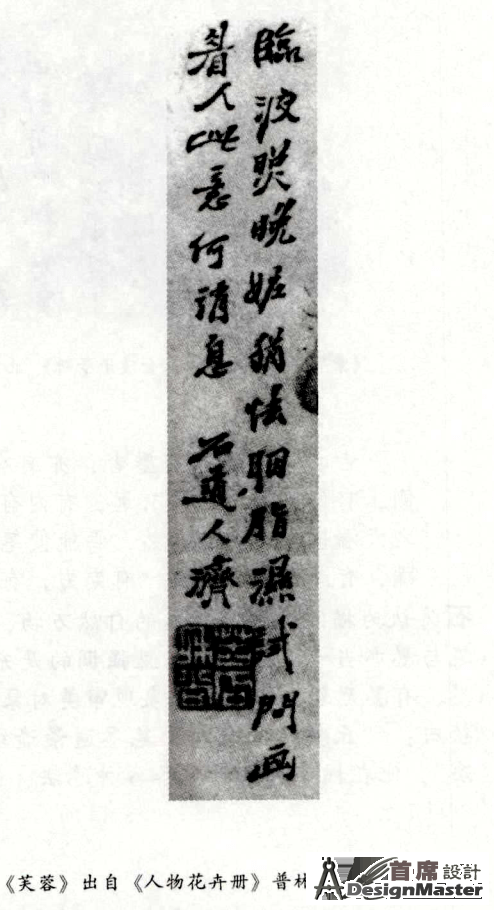 臨波照晚妝猶怯胭脂濕試問画
眉人此意何消息 石道人濟
《芙蓉》出自《人物花卉册》普林
首席設計
DesignMaster